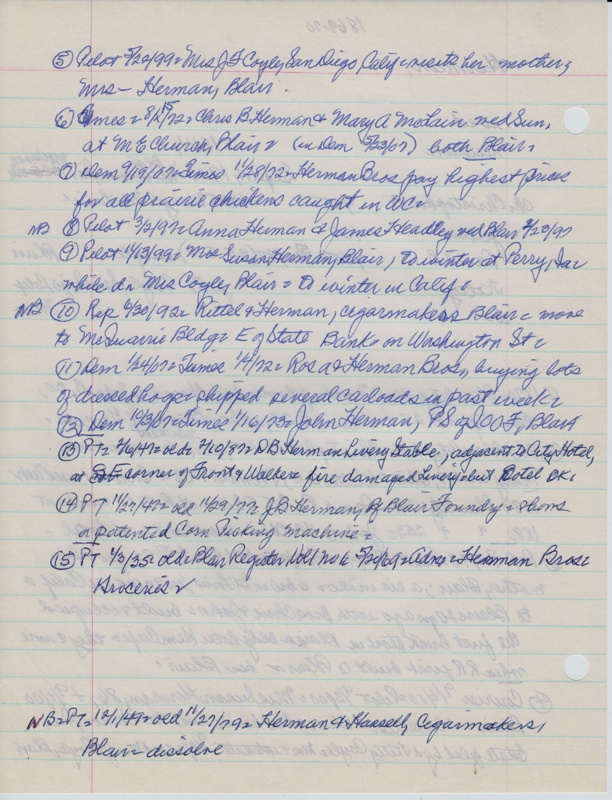 ⑤ Pilot 5/20/99= Mrs J F Coyle, San Diego, Calif= visits her mother,
Mrs - Herman, Blair.
⑥ Times= 8/15/72= Chris B. Herman & Mary A McLain wed Sun,
at M E Church, Blair= (in Dem 5/23/07) both Blair=
⑦ Dem 9/19/07= Times 11/28/72= Herman Bros pay highest prices
for all prairie chickens caught in WC=
NB ⑧ Pilot 3/2/97= Anna Herman & James Headley wed Blair 2/23/97
⑨ Pilot 11/13/99= Mrs Susan Herman, Blair, to winter at Perry, Ia=
while da Mrs Coyle, Blair= to winter in Calif=
NB ⑩ Rep 6/30/92= Rittel & Herman, cigarmakers Blair= move
to McQuarrie Bldg= E of State Bank= on Washington St=
⑪ Dem 1/24/07= Times 1/4/72= Rosa & Herman Bros, buying lots
of dressed hogs= shipped several carloads in past week=
⑫ Dem 10/3/07= Times 1/16/73= John Herman, PS of IOOF, Blair
⑬ PT= 2/6/47= old= 2/10/87= DB Herman Livery Stable, adjacent to City Hotel,
at corner of Front & Walker= fire damaged Livery but Hotel OK=
⑭ PT 11/27/47= old 11/29/77= J B Herman, of Blair Foundry= shows
a patented Corn Picking machine=
⑮ PT 1/3/35= old= Blair Register Vol 1 No 6 5/20/69= Adv= Herman Bros=
Groceries
NB= PT= 12/1/49= old 11/27/79= Herman & Hassell, Cigarmakers,
Blair= dissolve